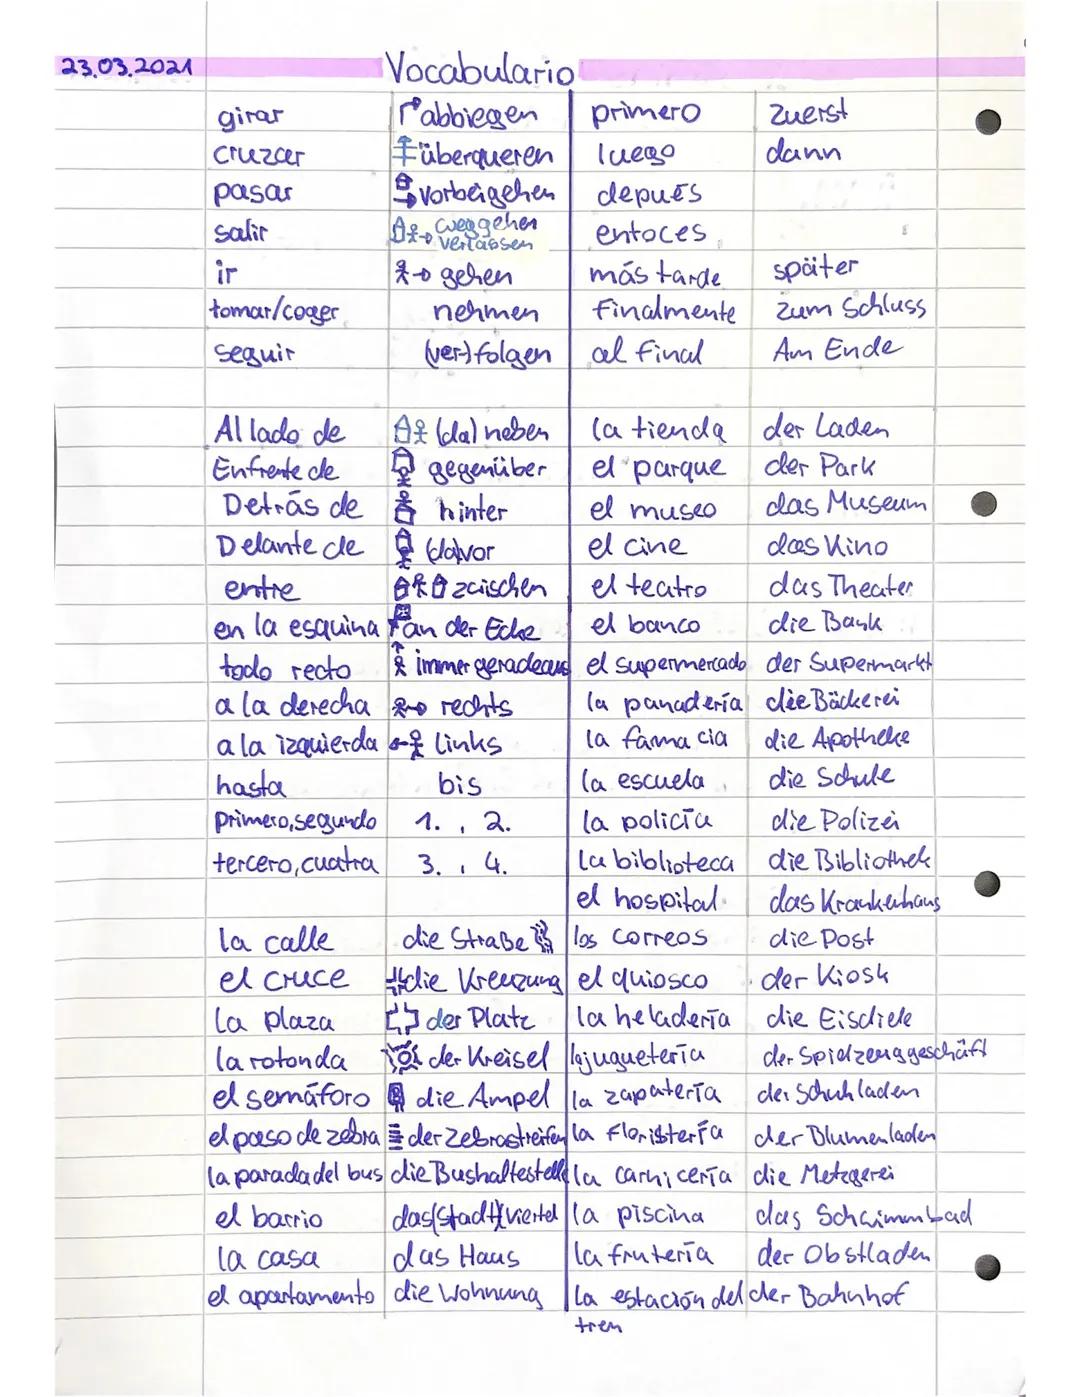 23.03.2021 Vocabulario
girar abbiegen primero zuerst
cruzar überqueren luego dann
pasar vorbeigehen depués
salir weggehen verlassen entoces
ir gehen más tarde später
tomar/coger nehmen finalmente zum Schluss
seguir (ver-)folgen al final Am Ende
Al lado de (da) neben la tienda der Laden
Enfrente de gegenüber el parque der Park
Detrás de hinter el museo das Museum
Delante de (da)vor el cine das Kino
entre zwischen el teatro das Theater
en la esquina an der Ecke el banco die Bank
todo recto immer geradeaus el supermercado der Supermarkt
a la derecha rechts la panadería die Bäckerei
a la izquierda links la fama cia die Apotheke
hasta bis la escuela die Schule
primero, segundo 1., 2. la policía die Polizei
tercero, cuatra 3., 4. la biblioteca die Bibliothek
el hospital das Krankenhaus
la calle die Straße los correos die Post
el cruce die Kreuzung el quiosco der Kiosk
la plaza der Platz la heladería die Eisdiele
la rotonda der Kreisel la juguetería der Spielzeuggeschäft
el semáforo die Ampel la zapatería der Schuhladen
el paso de zebra der Zebrastreifen la floristería der Blumenladen
la parada del bus die Bushaltestelle la carnicería die Metzgerei
el barrio das (Stadt)viertel la piscina das Schwimmbad
la casa das Haus la frutería der Obstladen
el apartamento die Wohnung la estación del der Bahnhof
tren